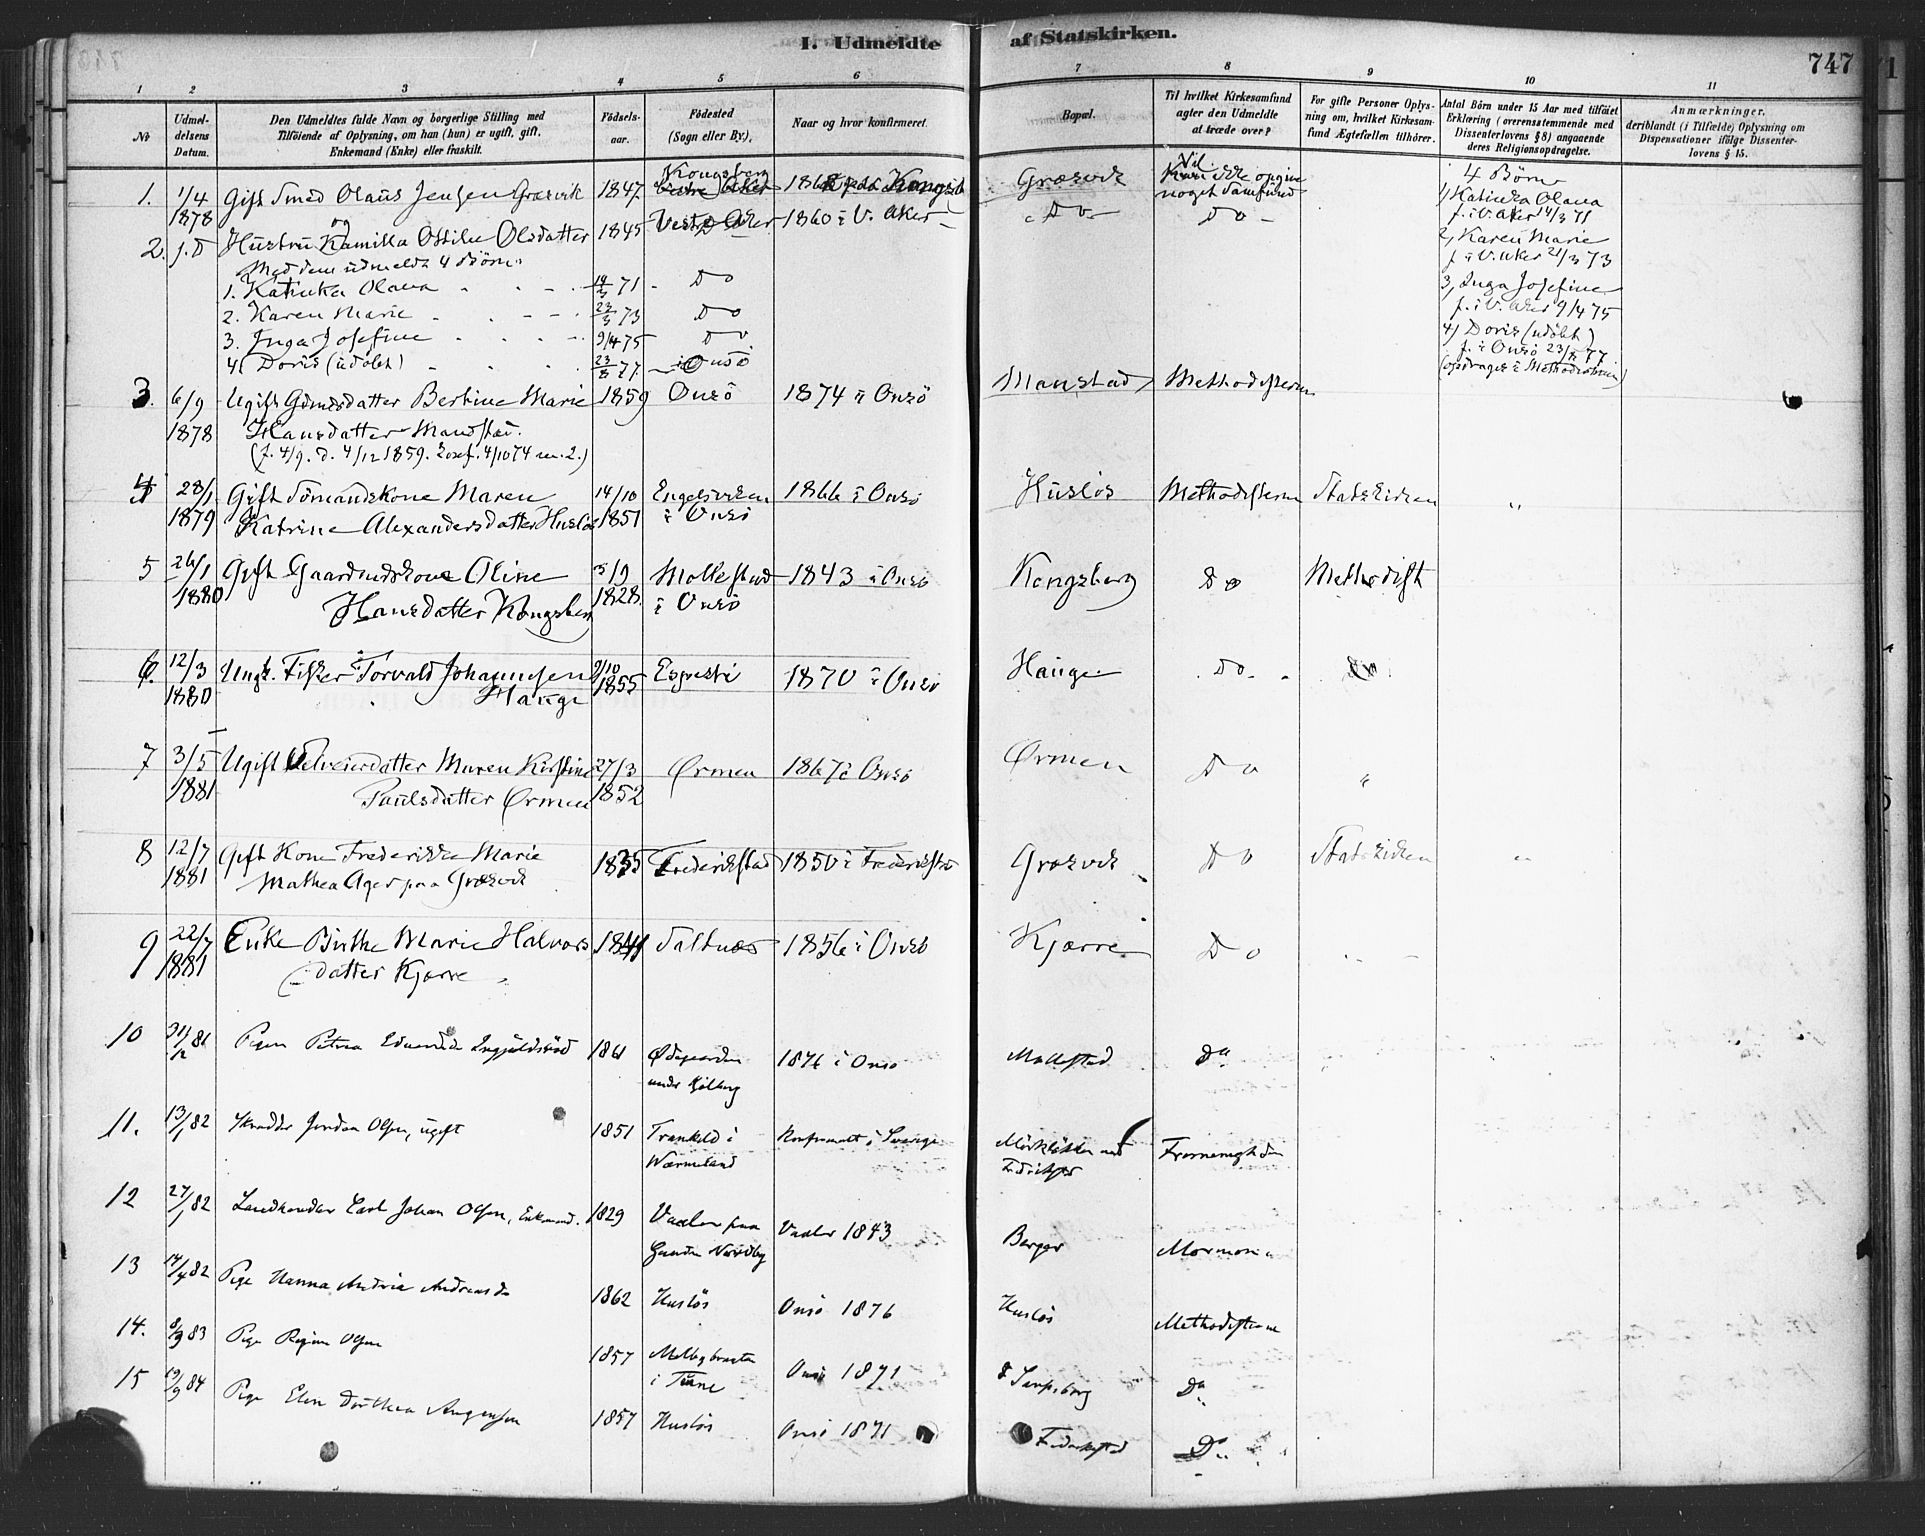 I. Udmeldte af Statskirken.
747
1 2 3 4 5 6 7 8 9 10 11
No
Udmeldelsens Datum.
Den Udmeldtes fulde Navn og borgerlige Stilling med
Tilföiende af Oplysning, om han (hun) er ugift, gift,
Enkemand (Enke) eller fraskilt.
Födselsaar.
Födested
(Sogn eller By).
Naar og hvor konfirmeret.
Bopæl.
Til hvilket Kirkesamfund
agter den Udmeldte
at træde over?
For gifte Personer Oplysning om, hvilket Kirkesamfund Ægtefællen tilhörer.
Antal Börn under 15 Aar med tilföiet
Erklæring (overensstemmende med
Dissenterlovens § 8) angaaende
deres Religionsopdragelse.
Anmærkninger,
deriblandt (i Tilfælde) Oplysning om
Dispensationer ifölge Dissenterlovens § 15.
1. 1/4 1878 Gift Smed Olaus Jensen Græsvik 1847 Kongsberg Græsvik Vil ikke opgive noget Samfund
4 Börn
1, Katinka Olava
f. i V. Aker 14/3 71
2, Karen Marie
f. i V. Aker 21/3 73
3, Inga Josefine
f. i V. Aker 9/4 75
4, Doris (udöbt)
f. i Onsö 23/8 77
2. s. D og Hustru Kamilla Ottilie Olsdatter 1845 Vestre Aker 1860 i V. Aker Do Do
Med dem udmeldt 4 Börn:
1. Katinka Olava 14/3 71 Do
2. Karen Marie 23/3 73 Do
3. Inga Josefine 9/4 75 Do
4, Doris (udöbt) 23/8 77 i Onsö
3. 6/9 1878 Ugift Gdmdsdatter Bertine Marie 1859 Onsö 1874 i Onsö Manstad Methodisterne
Hansdatter Manstad.
(f. 4/9. d. 4/12 1859. Conf. 4/10 74 no. 2.)
4 28/1 1879 Gift Sömandskone Maren 14/10 1851 Engelsviken i Onsö 1866 i Onsö Huslös Methodisterne Statskirken "
Katrine Alexandersdatter Huslös
5 26/1 1880 Gift Gaardmdskone Oline 5/9 1828 Mollestad i Onsö 1843 i Onsö Kongsberg Do Methodist
Hansdatter Kongsberg
6. 12/3 1880 Ungk. Fisker Torvald Johannesen 9/10 1855 1870 i Onsö Hauge Do Do
Hauge
7 3/5 1881 Ugift Maren Kirstine 27/3 1852 Ørmen 1867 i Onsö Ørmen Do "
Paulsdatter Ørmen
8 12/7 1881 Gift Kone Frederikke Marie 1835 Frederikstad 1850 i Frederikstad Græsvik Do Statskirken "
Mathea Ager paa Græsvik
9 22/7 1881 Enke Birthe Marie Halvors 1841 Saltnæs 1856 i Onsö Kjærre Do
datter Kjærre
10 31/12 81 Pigen Petrea 1861 Ødegaarden under Kjölberg 1876 i Onsö Mollestad Do
11. 13/1 82 Skrædder Olsen, ugift 1851 i Wærmeland Konfirmeret i Sverige
12 27/1 82 Landhandler Carl Johan Olsen, Enkemand. 1829 Vaaler paa Vaaler 1843 Berger Mormonerne
13 14/4 82 Pige Hanna Andrea 1862 Huslös Onsö 1876 Huslös Methodisterne
14. 8/9 83 Pige Regine Olsen 1857 i Tune Onsö 1871 Sarpsborg Do
15 19/9 84 Pige Elen Dorthea 1857 Huslös Onsö 1871 Frederikstad Do